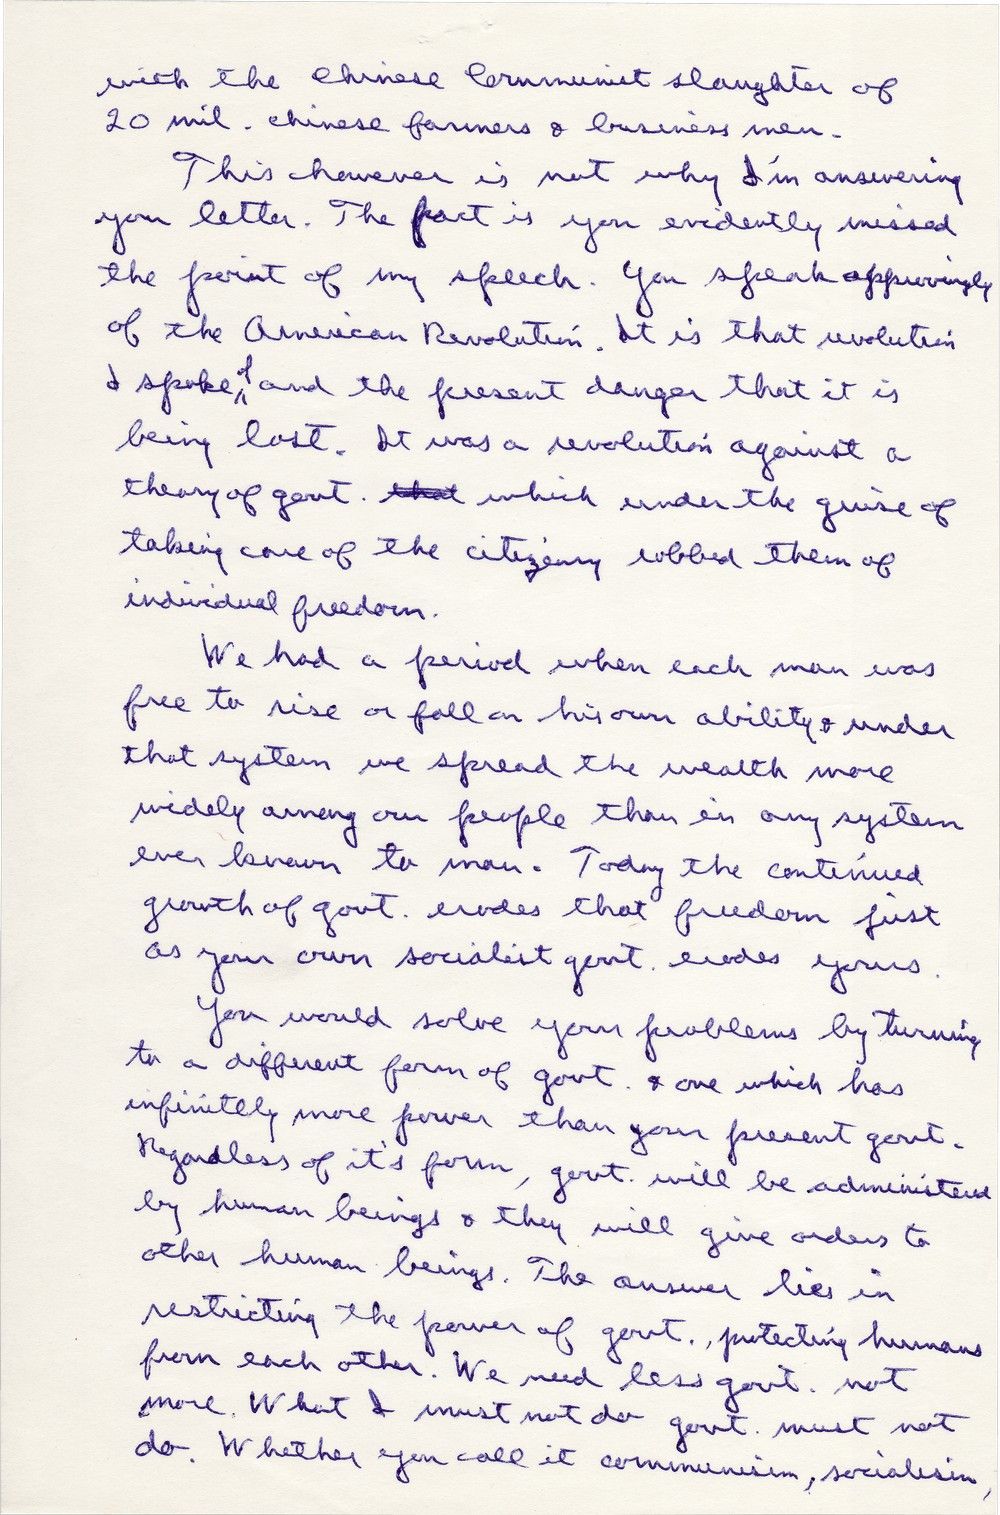 with the Chinese Communist slaughter of
20 mil. chinese farmers & business men.
This however is not why I'm answering
your letter. The fact is you evidently missed
the point of my speech. You speak approvingly
of the American Revolution. It is that revolution
I spoke of and the present danger that it is
being lost. It was a revolution against a
theory of govt. that which under the guise of
taking care of the citizenry robbed them of
individual freedom.
We had a period when each man was
free to rise or fall on his own ability & under
that system we spread the wealth more
widely among our people than in any system
ever known to man. Today the continued
growth of govt. erodes that freedom just
as your own socialist govt. erodes yours.
You would solve your problems by turning
to a different form of govt. & one which has
infinitely more power than your present govt.
Regardless of it's form, govt. will be administered
by human beings & they will give orders to
other human beings. The answer lies in
restricting the power of govt., protecting humans
from each other. We need less govt. not
more. What I must not do govt. must not
do. Whether you call it communism, socialism,